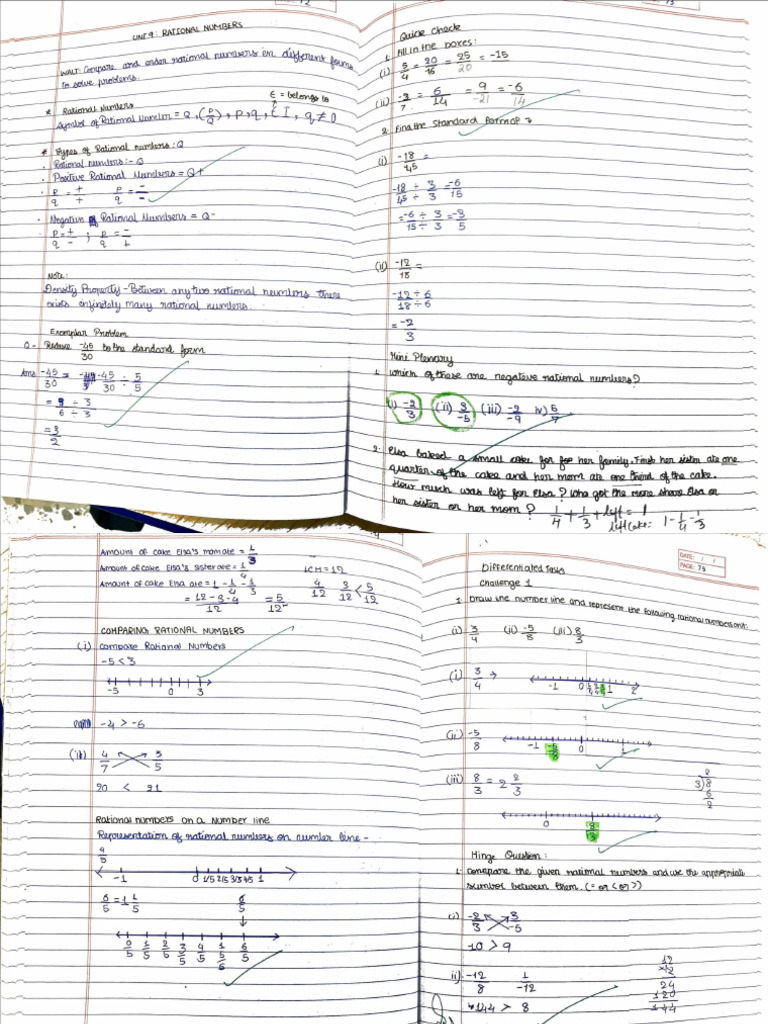 UNIT 9: RATIONAL NUMBERS
WALT: Compare and order rational numbers in different forms
to solve problems.
* Rational Numbers
∈ = belongs to
Symbol of Rational Number = Q, (p/q), p, q, ∈ I, q ≠ 0
* Types of Rational numbers: Q
· Rational numbers:- Q
· Positive Rational Numbers = Q+
· p/q = +/+ p/q = -/-
· Negative Rational Numbers = Q-
· p/q = +/- ; p/q = -/+
Note:
Density Property - Between any two rational numbers there
exists infinitely many rational numbers.
Exemplar Problem
Q- Reduce -45/30 to the standard form
Ans -45/30 = -45/30 ÷ 5/5
= 9/6 ÷ 3/3
= 3/2
73
Quick Check
1. Fill in the boxes:
(i) 5/4 = 20/16 = 25/20 = -15
(ii) -3/7 = 6/14 = 9/-21 = -6/14
2. Find the standard form of →
(i) -18/45 =
-18/45 ÷ 3/3 = -6/15
= -6/15 ÷ 3/3 = -3/5
(ii) -12/18 =
-12/18 ÷ 6/÷ 6
= -2/3
Mini Plenary
1. Which of these are negative rational numbers?
(i) -2/3 (ii) 3/-5 (iii) -2/-9 iv) 5/7
2. Elsa baked a small cake for her family. First her sister ate one
quarter of the cake and her mom ate one third of the cake.
How much was left for Elsa? Who got the more share Elsa or
her sister or her mom? 1/4 + 1/3 + left = 1
left cake: 1 - 1/4 - 1/3
Amount of cake Elsa's mom ate = 1/3
Amount of cake Elsa's sister ate = 1/4 LCM = 12
Amount of cake Elsa ate = 1 - 1/4 - 1/3 4/12 3/12 < 5/12
= 12-3-4/12 = 5/12
COMPARING RATIONAL NUMBERS
(i) Compare Rational Numbers
-5 < 3
-5 0 3
-4 > -6
(ii) 4/7 3/5
20 < 21
Rational numbers on a Number line
Representation of rational numbers on number line -
4/5
-1 0 1/5 2/5 3/5 4/5 1
6/5 = 1 1/5 6/5
0/5 1/5 2/5 3/5 4/5 5/5 6/5
DATE: / /
PAGE: 75
Differentiated Tasks
Challenge 1
1. Draw the number line and represent the following rational numbers on it:
(i) 3/4 (ii) -5/8 (iii) 8/3
(i) 3/4 →
-1 0 1/4 2/4 3/4 1 2
(ii) -5/8
-1 -5/8 0 1
(iii) 8/3 = 2 2/3
2
3)8
6
2
0 8/3
Hinge Question:
1. Compare the given rational numbers and use the appropriate
symbol between them. (= or < or >)
(i) -2/3 3/-5
10 > 9
ii) -12/8 1/-12
144 > 8
12
×12
24
120
144